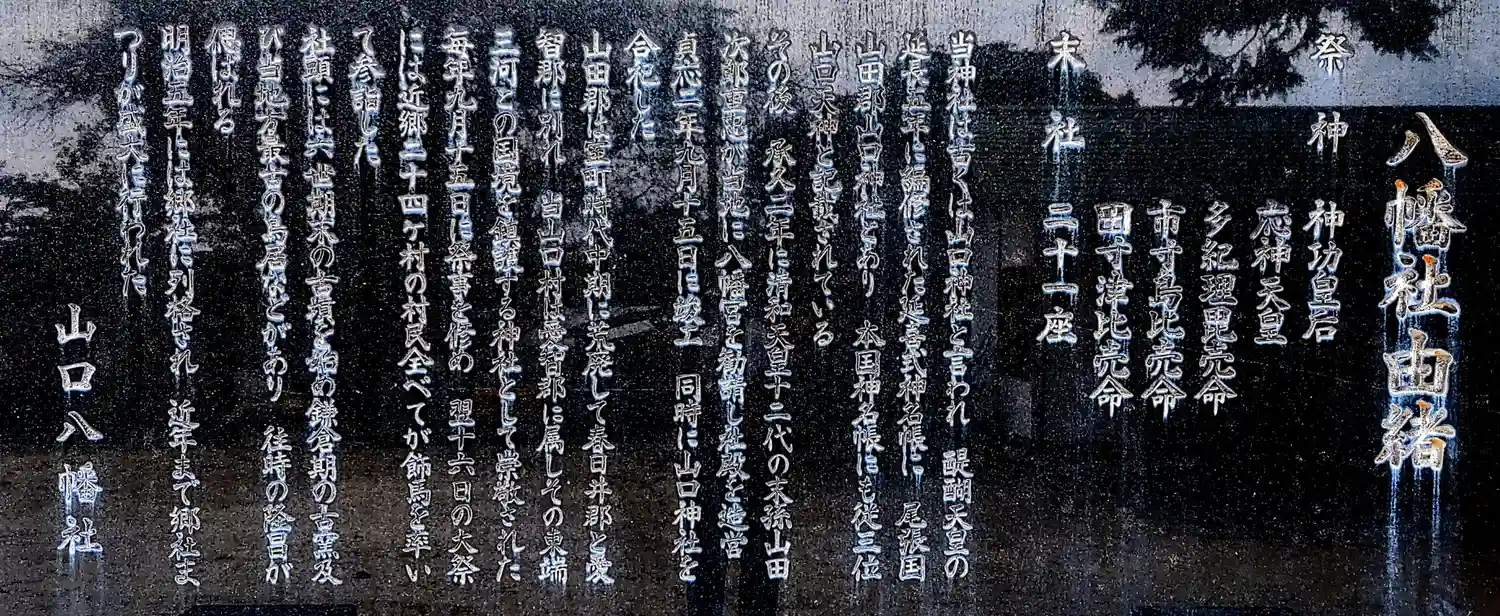 八幡社由緒
祭神 神功皇后
応神天皇
多紀理毘売命
市寸島比売命
田寸津比売命
末社 二十一座
当神社は古くは山口神社と言われ 醍醐天皇の
延長五年に編修された延喜式神名帳に 尾張国
山田郡山口神社とあり 本国神名帳にも従三位
山口天神と記載されている
その後 承久二年に清和天皇十二代の末孫山田
次郎重忠が当地に八幡宮を勧請し社殿を造営
貞応二年九月十五日に竣工 同時に山口神社を
合祀した
山田郡は室町時代中期に荒廃して春日井郡と愛
智郡に別れ 当山口村は愛智郡に属しその東端
三河との国境を鎮護する神社として崇敬された
毎年九月十五日に祭事を修め 翌十六日の大祭
には近郷二十四ヶ村の村民全べてが飾馬を率い
て参詣した
社頭には六世期末の古墳を始め鎌倉期の古窯及
び当地方最古の鳥居などがあり 往時の隆昌が
偲ばれる
明治五年には郷社に列格され 近年まで郷社ま
つりが盛大に行われた
山口八幡社